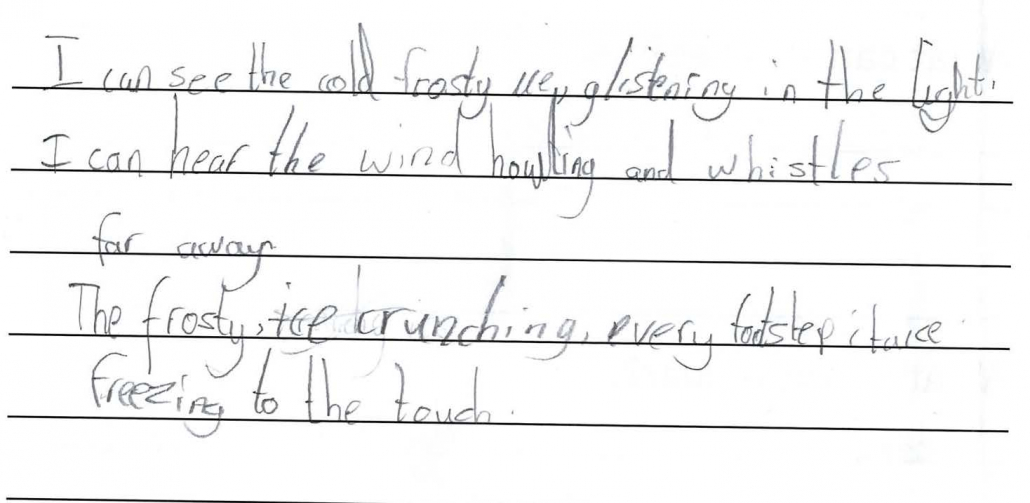 I can see the cold frosty glistening in the light.
I can hear the wind howling and whistles
far away
The frosty, ice crunching, every footstep
freezing to the touch.